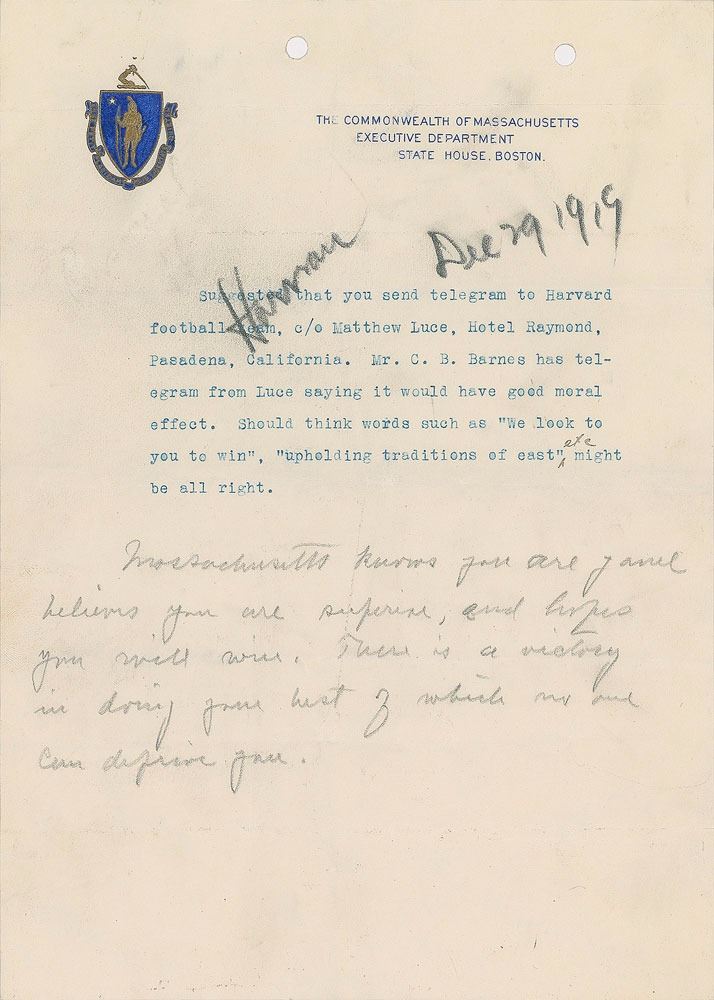 THE COMMONWEALTH OF MASSACHUSETTS
EXECUTIVE DEPARTMENT
STATE HOUSE, BOSTON.
Dec 29 1919
Suggested that you send telegram to Harvard
football team, c/o Matthew Luce, Hotel Raymond,
Pasadena, California. Mr. C. B. Barnes has tel-
egram from Luce saying it would have good moral
effect. Should think words such as "We look to
you to win", "upholding traditions of east", etc might
be all right.
Massachusetts knows you are game
believes you are superior, and hopes
you will win. There is a victory
in doing your best of which no one
can deprive you.